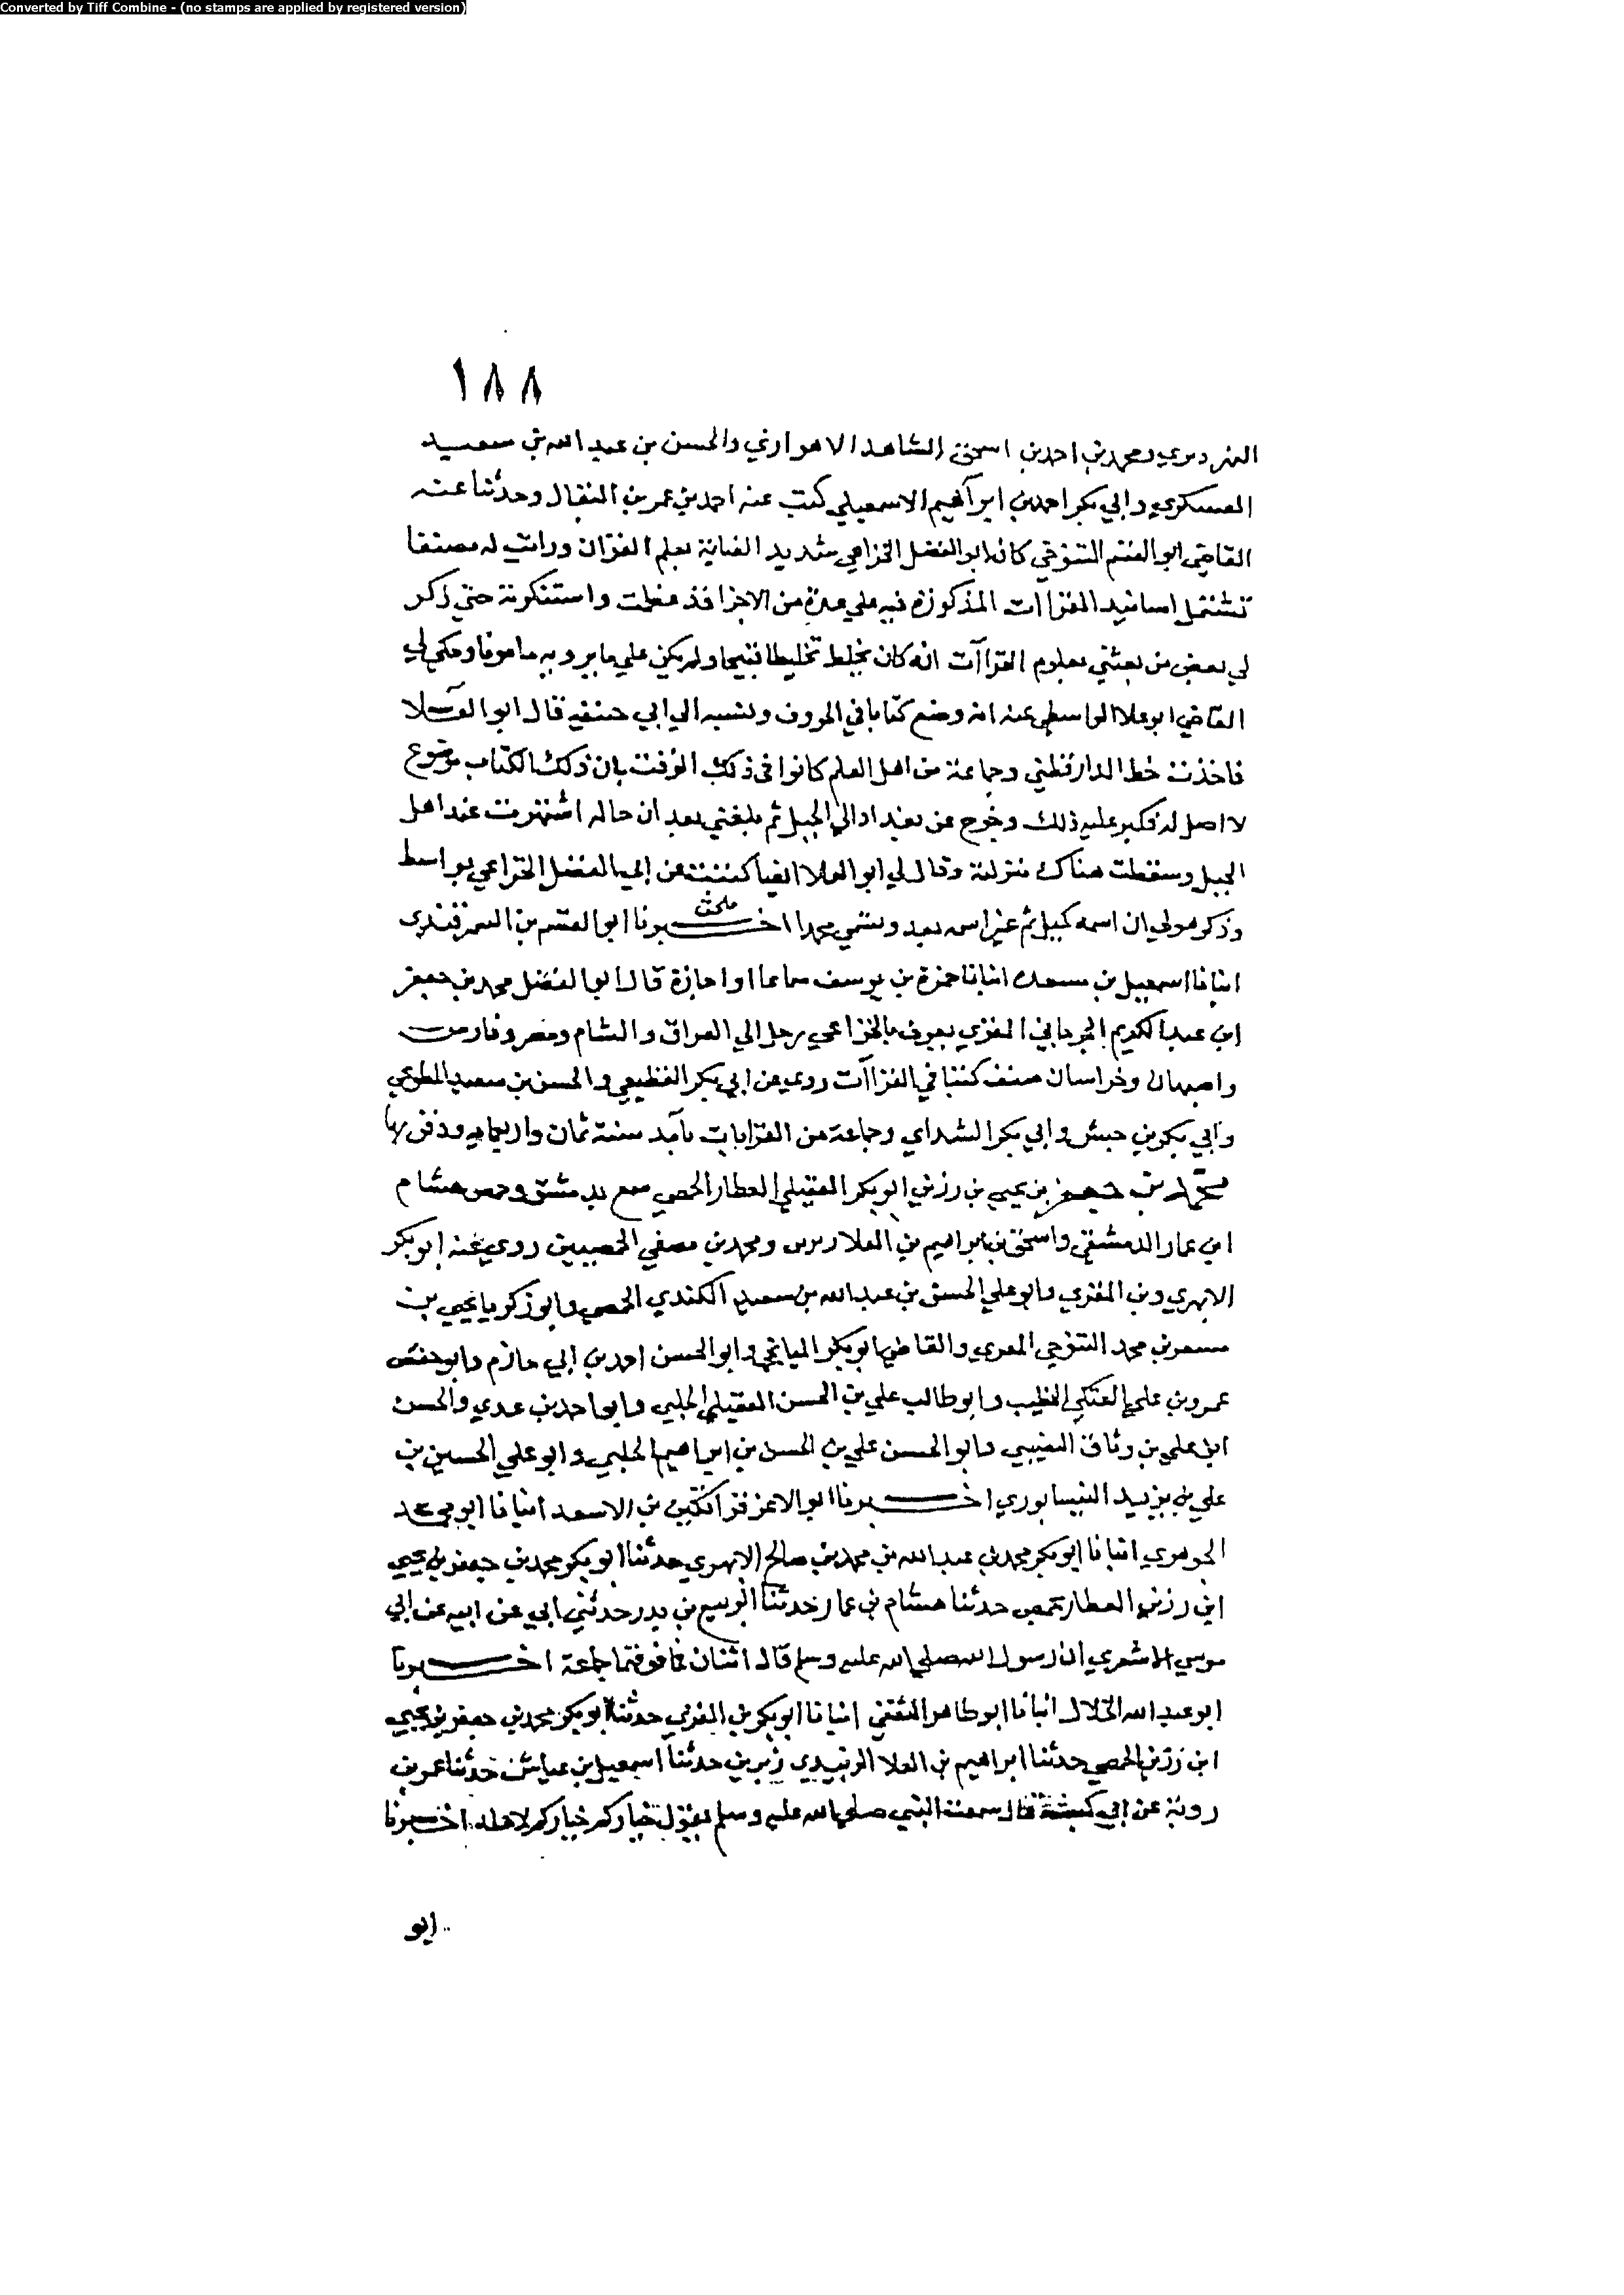 Converted by Tiff Combine - (no stamps are applied by registered version)
١٨٨
ومحمد بن احمد بن اسحق الشاهد الاهوازي والحسن بن عبد الله بن سعيد
العسكري وابي بكر احمد بن ابراهيم الاسمعيلي كتب عنه احمد بن عمر بن البقال وحدثنا عنه
القاضي ابو القسم التنوخي كان ابو الفضل الخزاعي شديد العناية بعلم القران ورايت له مصنفا
تشتمل اسانيد القراات المذكورة فيه علي عدة من الاجزا فذ عظمت واستنكرته حتي ذكر
لي بعض من يعتني بعلوم القراآت انه كان يخلط تخليطا قبيحا ولم يكن علي ما يرويه مامونا وحكي لي
القاضي ابو علا الواسطي عنه انه وضع كتابا في الحروف ونسبه الي ابي حنيفه قال ابو العلا
فاخذت خط الدارقطني وجماعة من اهل العلم كانوا في ذلك الوقت بان ذلك الكتاب موضوع
لا اصل له فكبر عليه ذلك وخرج عن بغداد الي الجبل ثم بلغني بعد ان حاله اشتهرت عند اهل
الجبل وسقطت هناك منزلته وقال لي ابو العلا ايضا كتبت عن ابي الفضل الخزاعي بواسط
وذكر هو لي ان اسمه كميل ثم غير اسمه بعد وتسمي محمدا اخبرنا ابو القسم بن السمرقندي
ملحق
انبانا اسمعيل بن مسعدة انبانا حمزة بن يوسف سماعا او اجازة قال ابو الفضل محمد بن جعفر
ابن عبد الكريم الجرجاني المقري يعرف بالخزاعي رحل الي العراق والشام ومصر وفارس
واصبهان وخراسان صنف كتبا في القراآت روي عن ابي بكر القطيعي والحسن بن سعيد المطوعي
وابي بكر بن حبش وابي بكر الشذاي وجماعة من القرا بات بآمد سنة ثمان واربعمايه ودفن بها
محمد بن جعفر بن يحيي بن رزين ابو بكر العقيلي العطار الحمصي سمع بدمشق وحمص هشام
ابن عمار الدمشقي واسحق بن ابراهيم بن العلا ومحمد بن مصفي الحمصيين روي عنه ابو بكر
الابهري وبن المقري وابو علي الحسن بن عبد الله بن سعيد الكندي الحمصي وابو زكريا يحيي بن
مسعر بن محمد التنوخي المعري والقاضي ابو بكر الميانجي وابو الحسن احمد بن ابي حازم وابو حفص
عمرو بن علي العتكي الخطيب وابو طالب علي بن الحسن العقيلي الحلبي وابو احمد بن عدي والحسن
ابن علي بن وثاق النصيبي وابو الحسن علي بن الحسن بن ابراهيم الحلبي وابو علي الحسين بن
علي بن يزيد النيسابوري اخبرنا ابو الاعز قراتكين بن الاسعد انبانا ابو محمد
الجوهري انبانا ابو بكر محمد بن عبد الله بن محمد بن صالح الابهري حدثنا ابو بكر محمد بن جعفر بن يحيي
ابن رزين العطار بحمص حدثنا هشام بن عمار حدثنا الربيع بن بدر حدثني ابي عن ابيه عن ابي
موسي الاشعري ان رسول الله صلي الله عليه وسلم قال اثنان فما فوقهما جماعة اخبرنا
ابو عبد الله الخلال انبانا ابو طاهر الثقفي انبانا ابو بكر بن المقري حدثنا ابو بكر محمد بن جعفر بن يحيي
ابن رزين الحمصي حدثنا ابراهيم بن العلا الزبيدي زبريق حدثنا اسمعيل بن عياش حدثنا عمر بن
روبة عن ابي كبشة قال سمعت النبي صلي الله عليه وسلم يقول خياركم خياركم لاهله اخبرنا
ابو